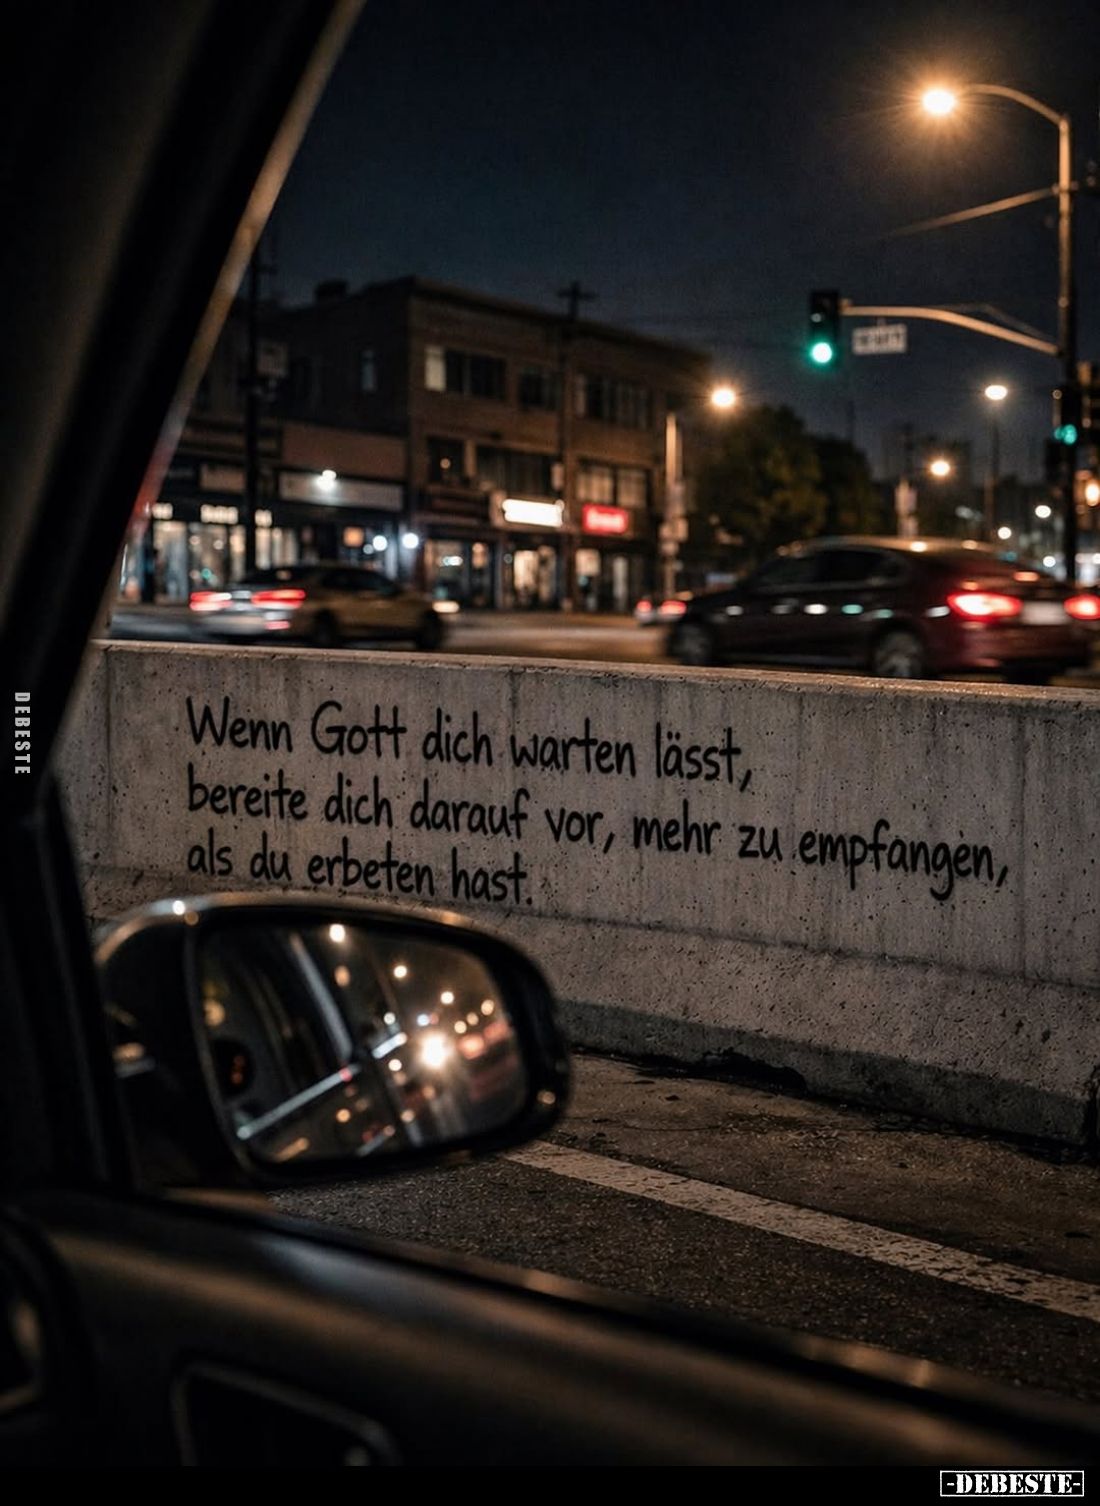 Wenn Gott dich warten lässt,
bereite dich darauf vor, mehr zu empfangen,
als du erbeten hast.
DEBESTE
-DEBESTE-